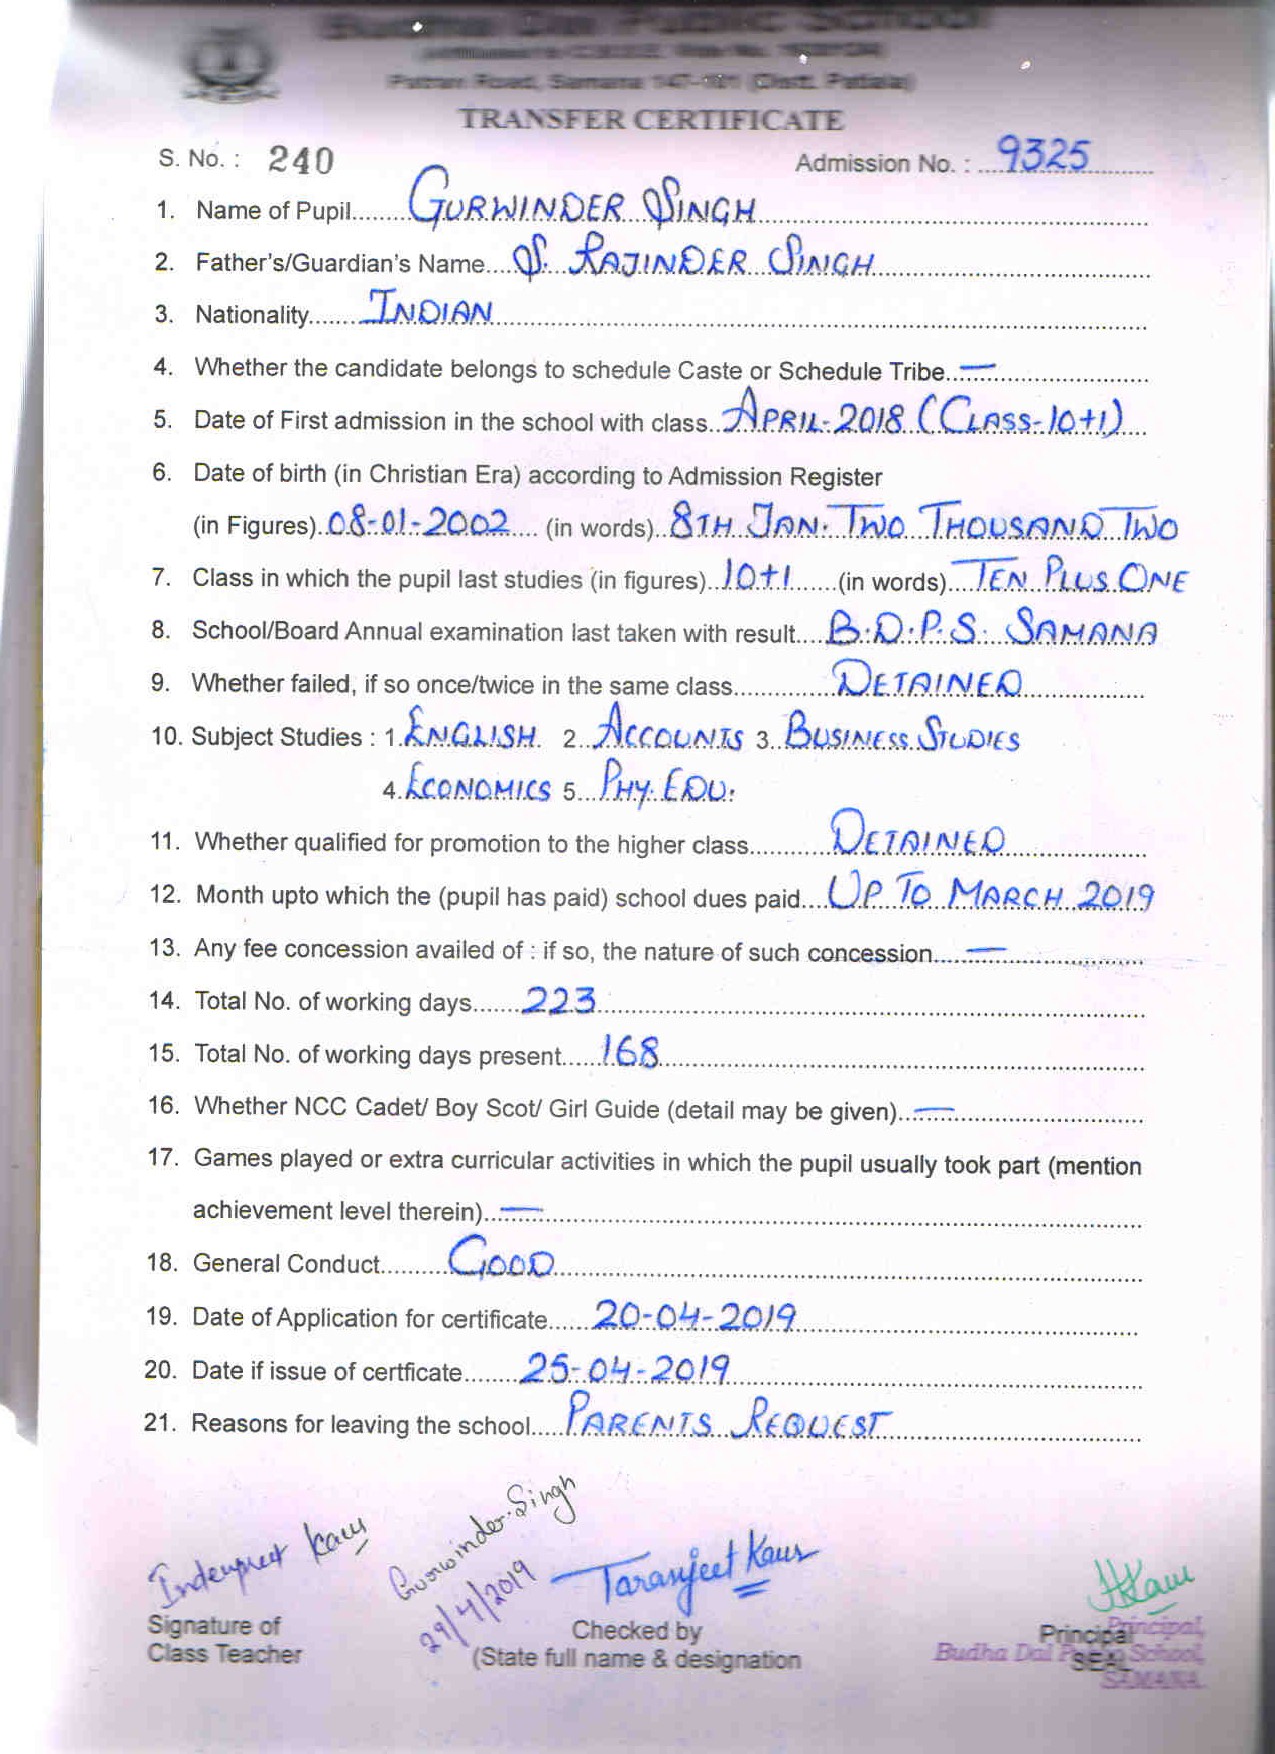 Budha Dal Public School
Patran Road, Samana 147-101 (Distt. Patiala)
TRANSFER CERTIFICATE
S. No. : 240 Admission No. : 9325
1. Name of Pupil GURWINDER SINGH
2. Father's/Guardian's Name S. RAJINDER SINGH
3. Nationality INDIAN
4. Whether the candidate belongs to schedule Caste or Schedule Tribe —
5. Date of First admission in the school with class APRIL-2018 (CLASS-10+1)
6. Date of birth (in Christian Era) according to Admission Register
(in Figures) 08-01-2002 (in words) 8TH JAN. TWO THOUSAND TWO
7. Class in which the pupil last studies (in figures) 10+1 (in words) TEN PLUS ONE
8. School/Board Annual examination last taken with result B.D.P.S. SAMANA
9. Whether failed, if so once/twice in the same class DETAINED
10. Subject Studies : 1. ENGLISH 2. ACCOUNTS 3. BUSINESS STUDIES
4. ECONOMICS 5. PHY. EDU.
11. Whether qualified for promotion to the higher class DETAINED
12. Month upto which the (pupil has paid) school dues paid UP TO MARCH 2019
13. Any fee concession availed of : if so, the nature of such concession —
14. Total No. of working days 223
15. Total No. of working days present 168
16. Whether NCC Cadet/ Boy Scot/ Girl Guide (detail may be given) —
17. Games played or extra curricular activities in which the pupil usually took part (mention
achievement level therein) —
18. General Conduct GOOD
19. Date of Application for certificate 20-04-2019
20. Date if issue of certficate 25-04-2019
21. Reasons for leaving the school PARENTS REQUEST
Inderpreet Kaur Gurwinder Singh Taranjeet Kaur
29/4/2019
Signature of Checked by Principal
Class Teacher (State full name & designation SEAL
Principal,
Budha Dal Public School,
SAMANA